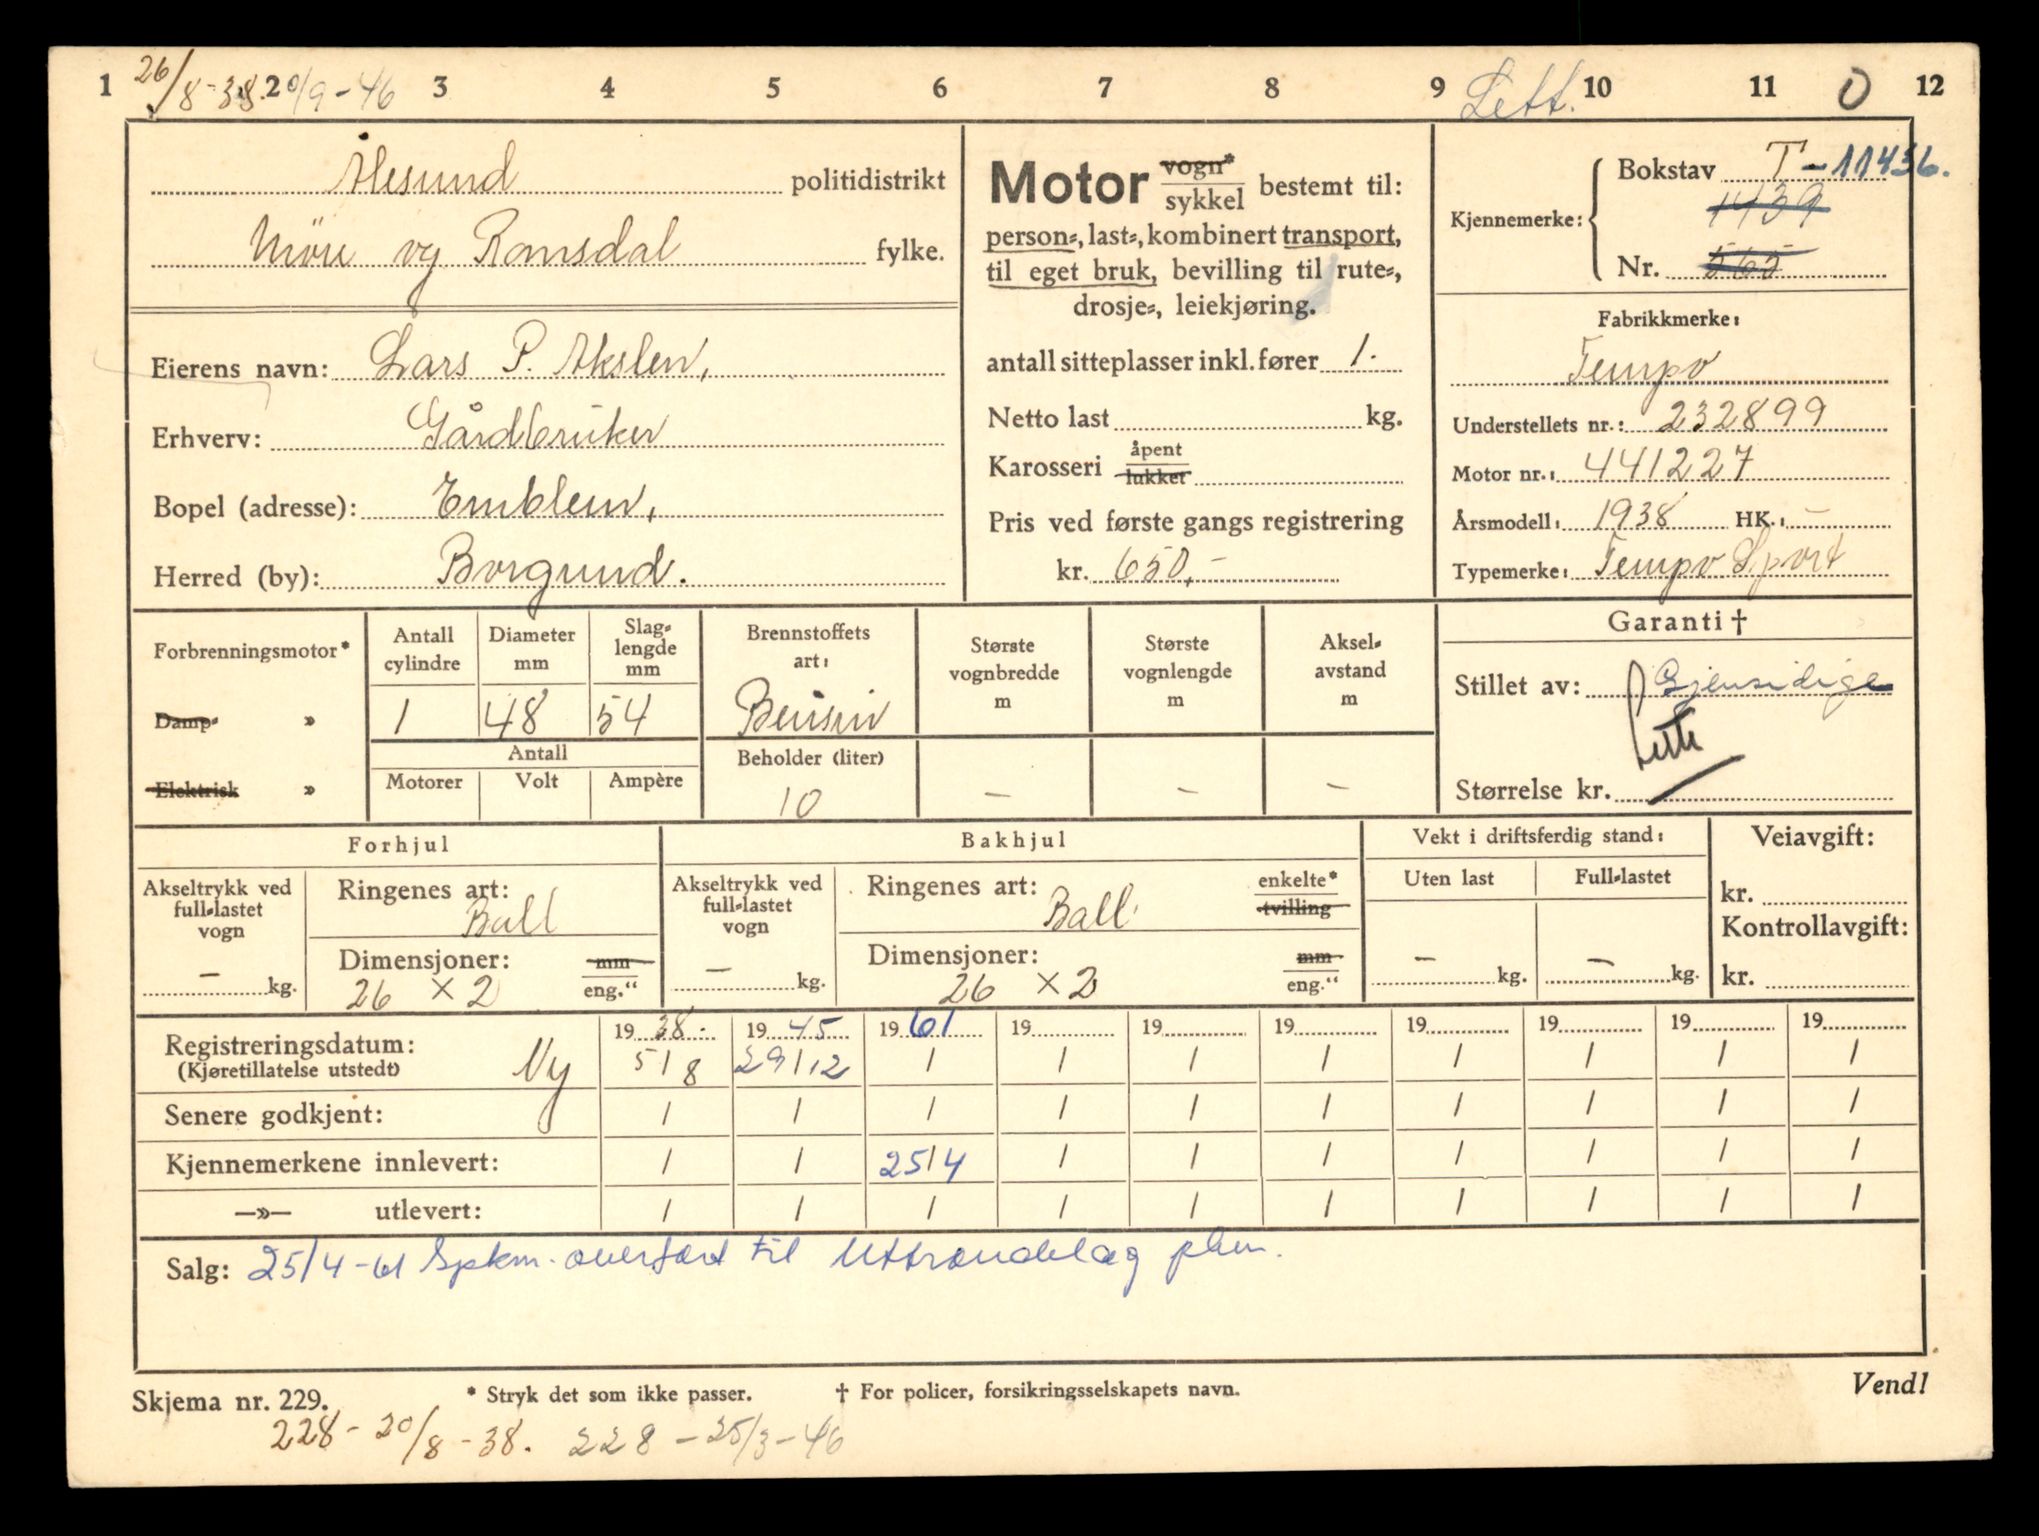 1 26/8-38. 2 20/9-46 3 4 5 6 7 8 9 Lett. 10 11 0 12
Ålesund politidistrikt
Möre og Romsdal fylke.
Eierens navn: Lars P. Akslen,
Erhverv: Gårdbruker
Bopel (adresse): Emblem,
Herred (by): Borgund.
Motor vogn* sykkel bestemt til:
person-, last-, kombinert transport,
til eget bruk, bevilling til rute-,
drosje-, leiekjøring.
antall sitteplasser inkl. fører 1.
Netto last kg.
Karosseri åpent lukket
Pris ved første gangs registrering
kr. 650,-
Kjennemerke: Bokstav T-11436.
1439
Nr. 565
Fabrikkmerke:
Tempo
Understellets nr.: 232899
Motor nr.: 441227
Årsmodell: 1938 HK.: -
Typemerke: Tempo Sport
Forbrenningsmotor*
Damp- »
Elektrisk »
Antall cylindre
1
Diameter mm
48
Slag-
lengde
mm
54
Antall
Motorer Volt Ampère
Brennstoffets
art:
Bensin
Beholder (liter)
10
Største
vognbredde
m
-
Største
vognlengde
m
-
Aksel-
avstand
m
-
Garanti †
Stillet av: Gjensidige
Lett
Størrelse kr.
Forhjul
Akseltrykk ved
full-lastet
vogn
- kg.
Ringenes art:
Ball
Dimensjoner: mm
26 x 2 eng.“
Bakhjul
Akseltrykk ved
full-lastet
vogn
- kg.
Ringenes art: enkelte*
Ball. tvilling
Dimensjoner: mm
26 x 2 eng.“
Vekt i driftsferdig stand:
Uten last Full-lastet
- kg. - kg.
Veiavgift:
kr.
Kontrollavgift:
kr.
19 38. 19 45 19 61 19 19 19 19 19 19 19
Registreringsdatum: Ny 5/8 29/12 / / / / / / / /
(Kjøretillatelse utstedt)
Senere godkjent: / / / / / / / / / /
Kjennemerkene innlevert: / / 25/4 / / / / / / /
—»— utlevert: / / / / / / / / / /
Salg: 25/4-61 Spkm. overført til Uttrøndelag pkm.
Skjema nr. 229. * Stryk det som ikke passer. † For policer, forsikringsselskapets navn. Vend!
228-20/8-38. 228-25/3-46